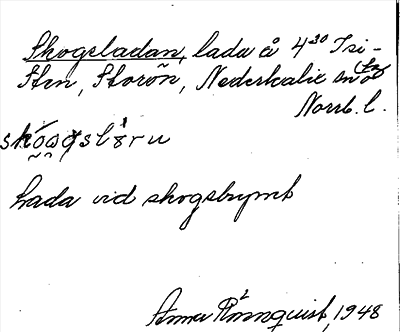 Skogsladan, lada å 4³⁰ Tri-
Sten, Storön, Nederkalix
Norrb. l.
lada vid skogsbrynet
Anna Rönnquist, 1948